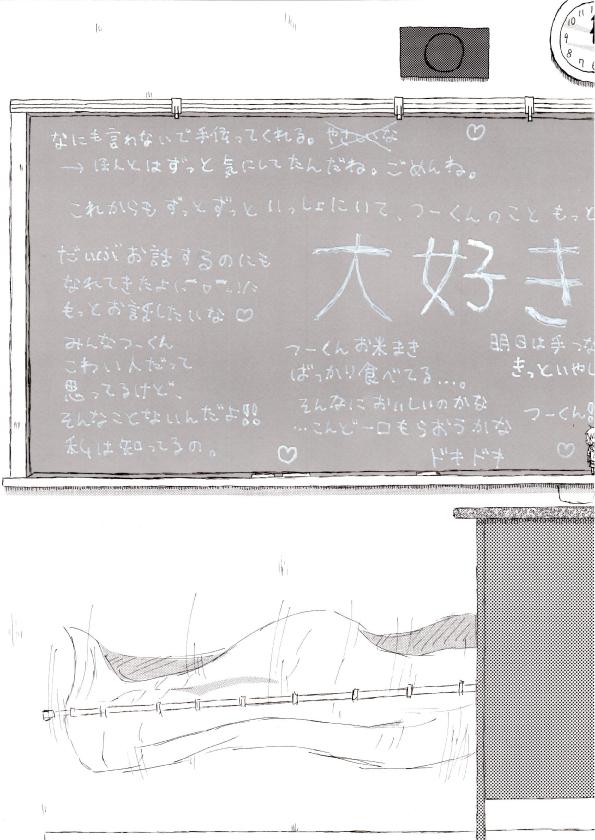 なにも言わないで手伝ってくれる。
→ ほんとはずっと気にしてたんだね。ごめんね。
これからもずっとずっといっしょにいて、つーくんのこともっと
大好き
だいぶお話するのにも
なれてきたよ
もっとお話したいな♡
みんなつーくん
こわい人だって
思ってるけど、
そんなことないんだよ!!
私は知ってるの。
つーくんお米まき
ばっかり食べてる…。
そんなにおいしいのかな
…こんど一口もらおうかな
ドキドキ
明日は手つな
きっといやし
つーくん!!
10 11
9
8 7 6